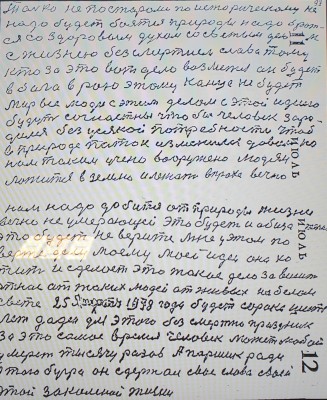 Только не постаром по историческому не
надо будет боятся природы надо
ся со здоровым духом со светым
с жизнею без смертием слава тому
кто за это вот дело возмется он будет
в бога в раю этому конца не будет
мир все люди с этим делом с этой идеей
будут согласны что бы человек заро-
дился без усякой потребности чтоб
в природе паток изменился
нам таким учено вооружено людям
ложится в землю и лежать в прахе вечно
нам надо добится от природы жизни
вечно не умерающей это будет и обиза
это будет не верите мне у этом по
верте делу моему моей идеи она хо
тит и сделает это такое дело зависит
от нас от таких людей от живых на белом
свете 25 1979 года будет сорок шесть
лет даден для этого без смертно празник
за это самое время человек может любой
умереть тысячу разов А паршик ради
этого бугра он сдержал свое слова своей
этой законной жизни
ИЮЛЬ
ИЮЛЬ
12